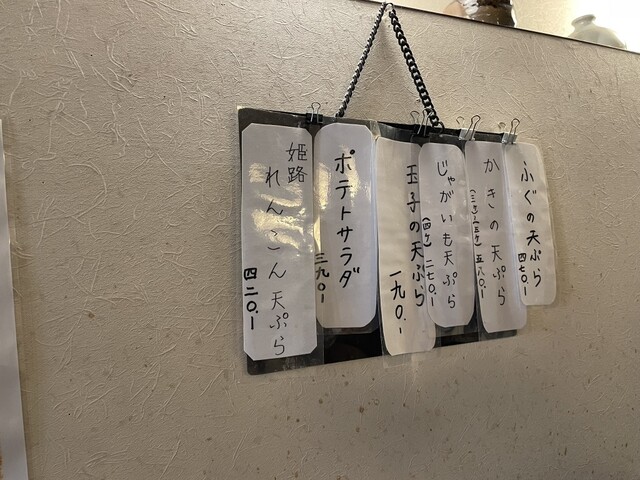 ふぐの天ぷら
四七〇.-
かきの天ぷら
五八〇.-
じゃがいも天ぷら
(四ケ) 二七〇.-
玉子の天ぷら
一九〇.-
ポテトサラダ
三九〇.-
姫路
れんこん天ぷら
四二〇.-